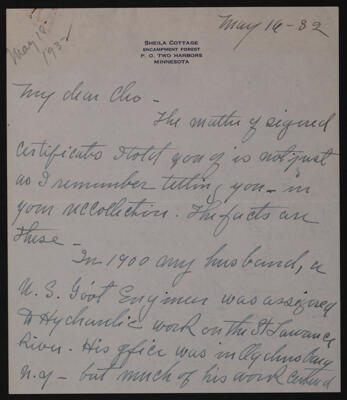 May 18
1932
May 16-32
SHEILA COTTAGE
ENCAMPMENT FOREST
P. O. TWO HARBORS
MINNESOTA
My dear Cho -
The matter of signed
certificates I told you of is not just
as I remember telling you - in
your recollection. The facts are
these -
In 1900 my husband, a
U.S. Gov't Engineer was assigned
to Hydraulic work on the St Lawrence
River. His office was in Ogdensburg
N.Y - but much of his work centered